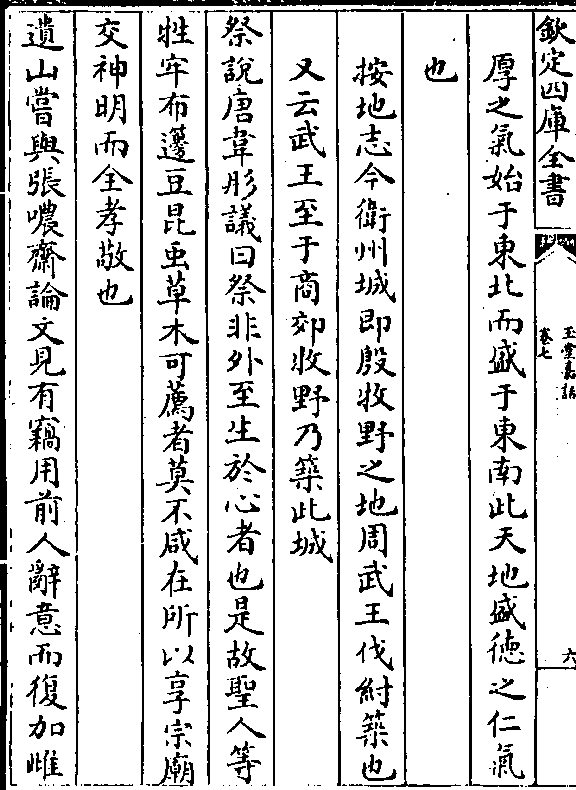 欽定四庫全書
玉堂嘉話
卷七
六
厚之氣始于東北而盛于東南此天地盛德之仁氣
也
按地志今衛州城即殷牧野之地周武王伐紂築也
又云武王至于商郊牧野乃築此城
祭說唐韋彤議曰祭非外至生於心者也是故聖人等
牲牢布籩豆昆虫草木可薦者莫不咸在所以享宗廟
交神明而全孝敬也
遺山嘗與張噥齋論文見有竊用前人辭意而復加雌